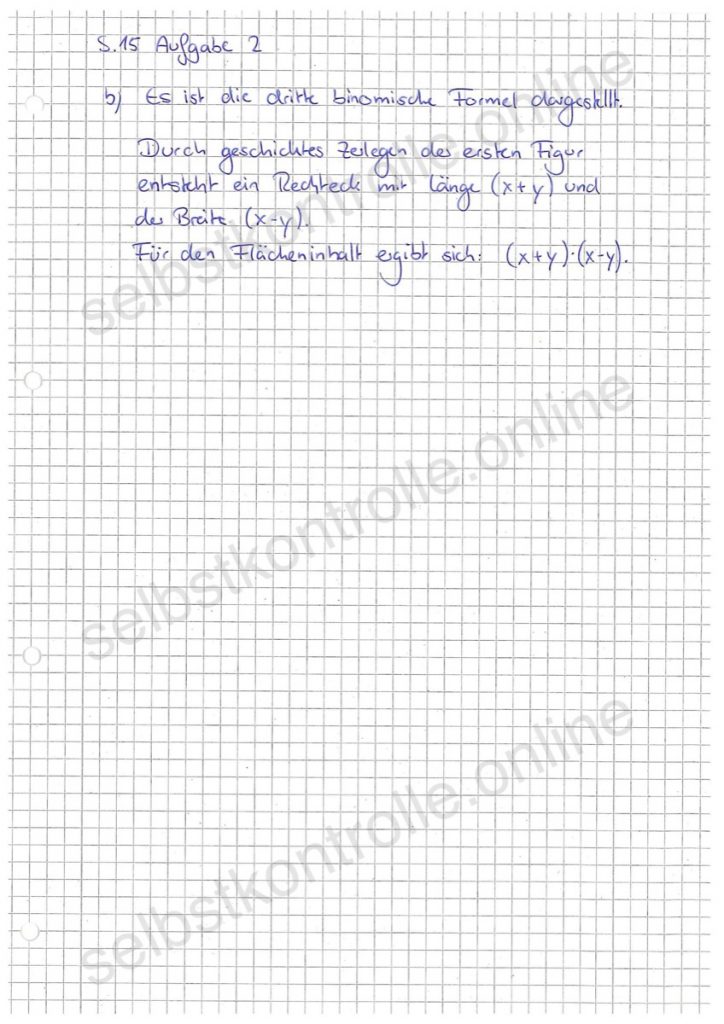 S.15 Aufgabe 2
b) Es ist die dritte binomische Formel dargestellt.
Durch geschicktes Zerlegen der ersten Figur
entsteht ein Rechteck mit Länge (x+y) und
der Breite (x-y).
Für den Flächeninhalt ergibt sich: (x+y)·(x-y).
selbstkontrolle.online
selbstkontrolle.online
selbstkontrolle.online